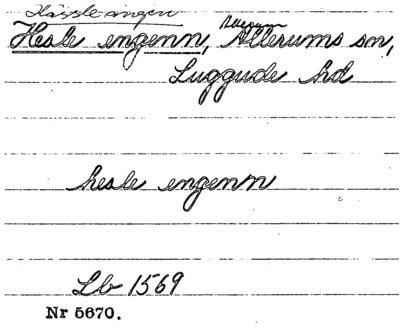 Hässleängen
Hesle engenn, Allerums sn,
Luggude hd
hesle engenn
Lb 1569
Nr 5670.